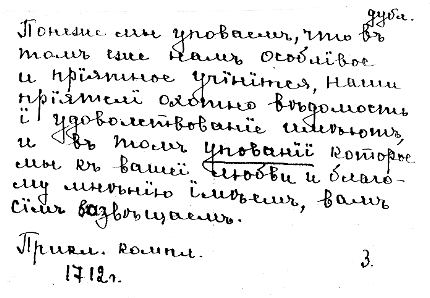 дубл.
Понеже мы уповаемъ, что въ
томъ еже намъ особлївое
и прїятное учїнїтся, наши
прїятелї охотно вѣдомость
ї удоволствованїе имѣютъ,
и въ томъ упованїї которое
мы къ вашеї любви и благо-
му мнѣнїю їмѣемъ, вамъ
сїмъ возвѣщаемъ.
Прикл. компл. 3.
1712г.